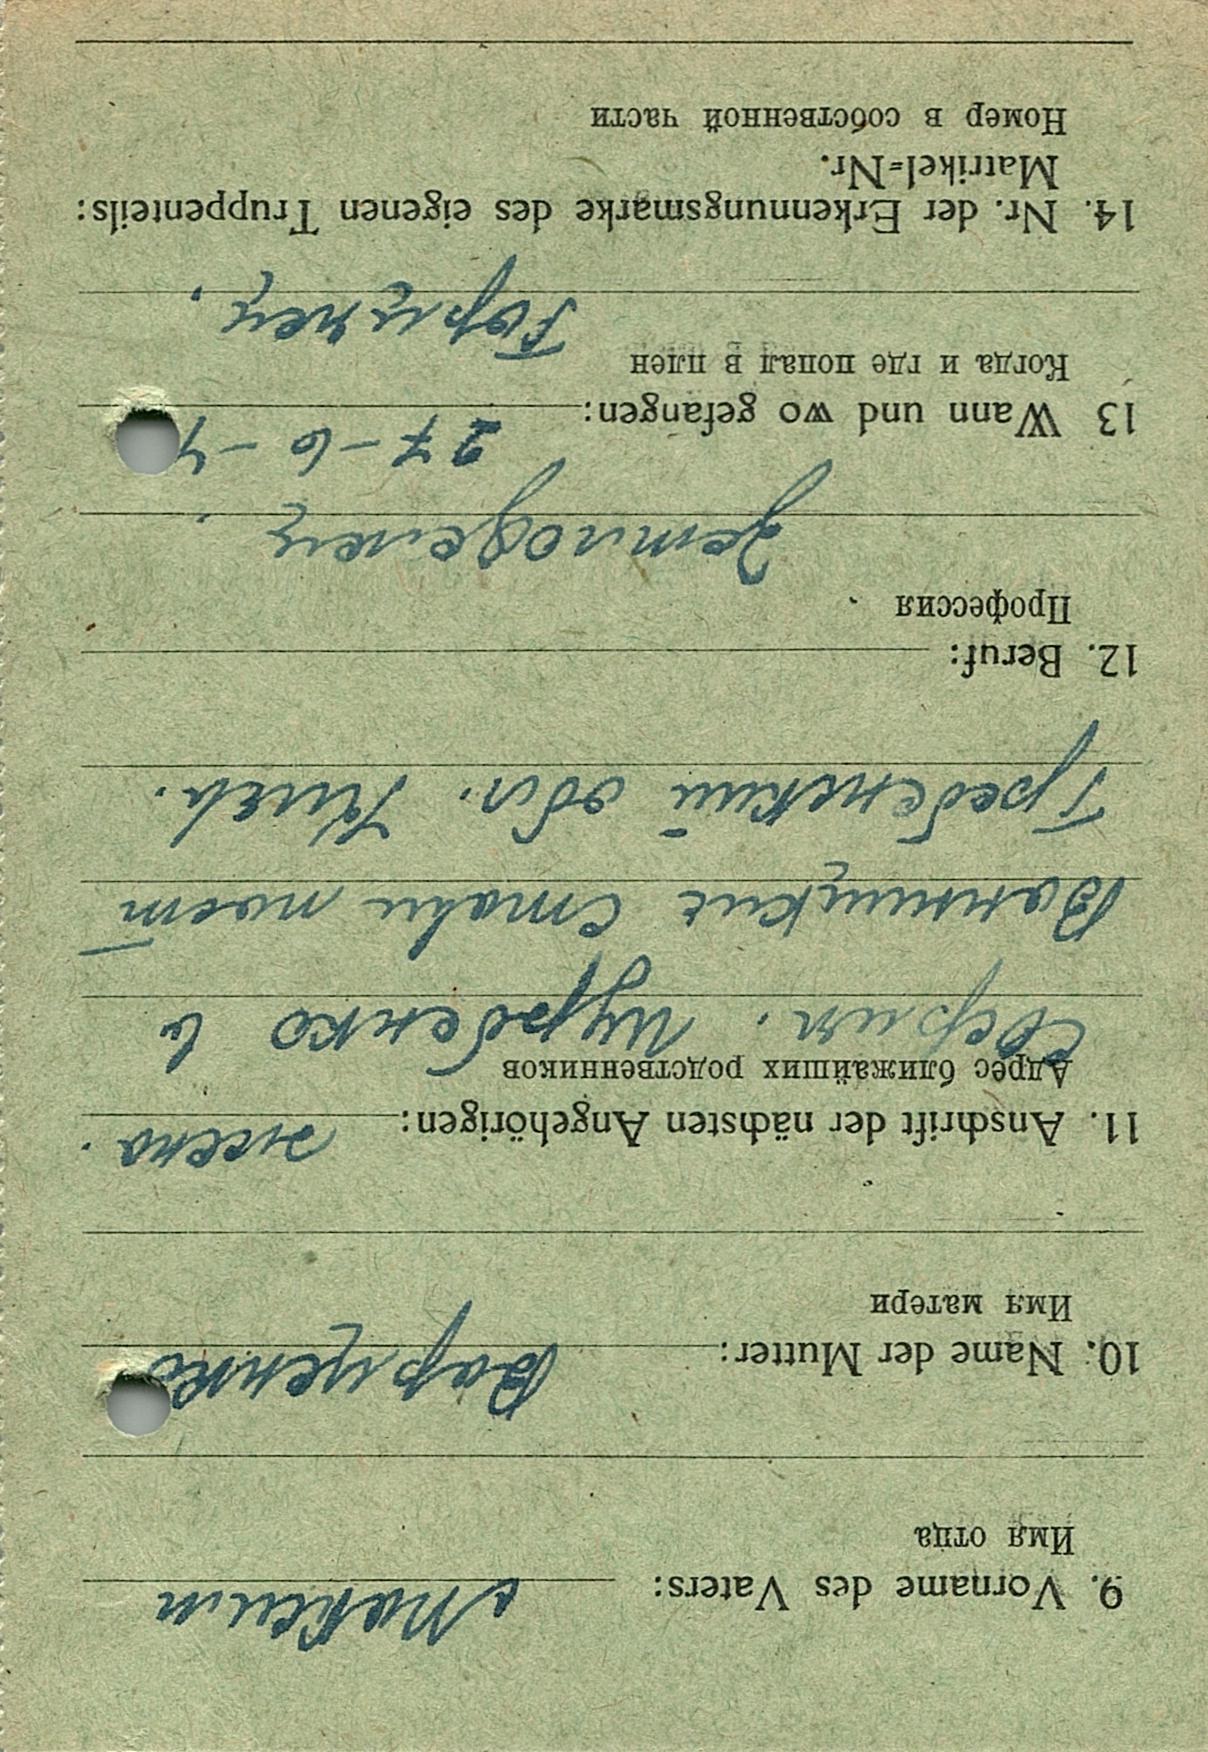 9. Vorname des Vaters: Максим
Имя отца
10. Name der Mutter: Варченко
Имя матери
11. Anschrift der nächsten Angehörigen: жена.
Адрес ближайших родственников
Цурбенко в
Винницкие Стави пост
Гребенский обл. Киев.
12. Beruf:
Профессия
Землоделец.
13 Wann und wo gefangen: 27-6-4
Когда и где попал в плен
14. Nr. der Erkennungsmarke des eigenen Truppenteils:
Matrikel=Nr.
Номер в собственной части